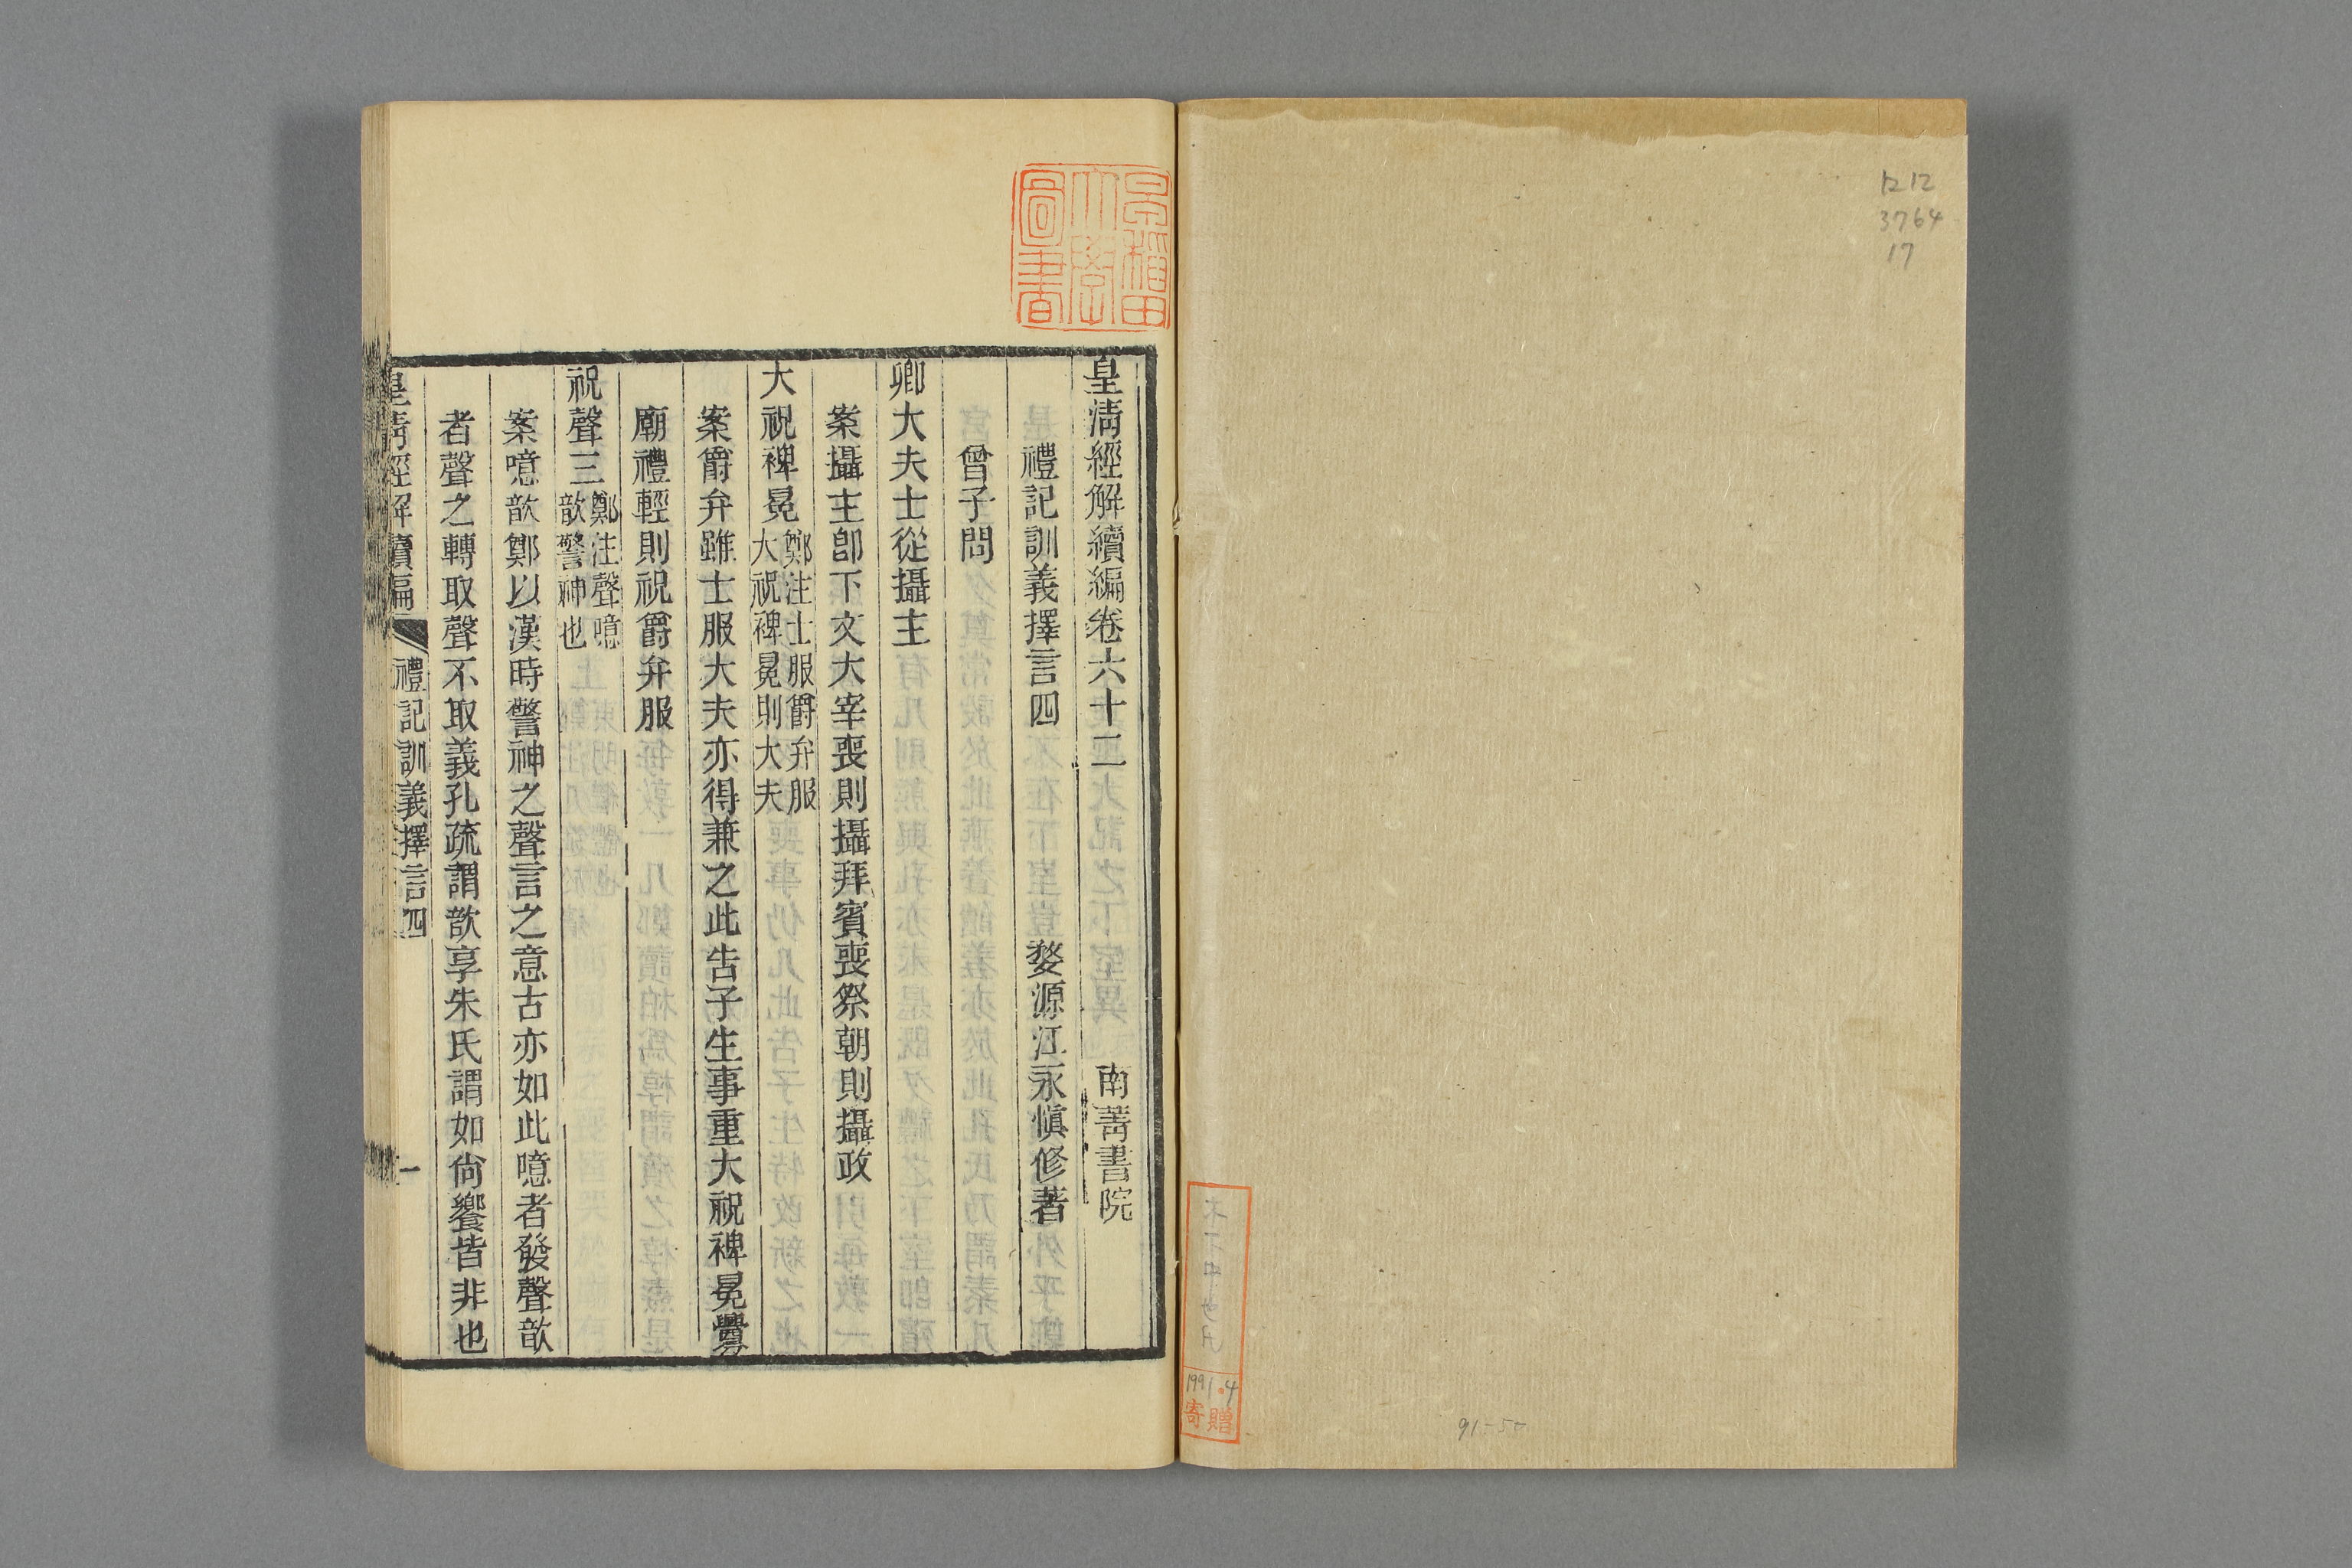 ロ12
3764
17
1991.4
寄贈
91-55
早稲田
大學
圖書
皇清經解續編卷六十二 南菁書院
禮記訓義擇言四 婺源江永愼修著
曾子問
卿大夫士從攝主
案攝主卽下文大宰喪則攝拜賓喪祭朝則攝政
大祝裨冕鄭注士服爵弁服大祝裨冕則大夫
案爵弁雖士服大夫亦得兼之此告子生事重大祝裨冕釁
廟禮輕則祝爵弁服
祝聲三鄭注聲噫歆警神也
案噫歆鄭以漢時警神之聲言之意古亦如此噫者發聲歆
者聲之轉取聲不取義孔疏謂歆享朱氏謂如尙饗皆非也
皇清經解續編 禮記訓義擇言四 一